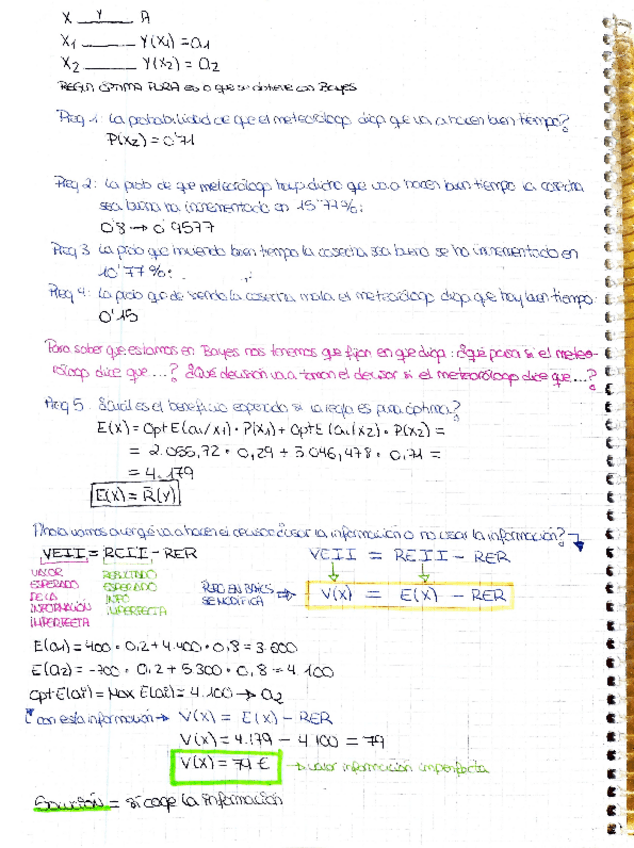 X Y A
X₁ Y(X₁) = a₁
X₂ Y(X₂) = a₂
REGLA ÓPTIMA PURA es la que se obtiene con Bayes
Preg 1: La probabilidad de que el meteorólogo diga que va a hacer buen tiempo?
P(X₂) = 0'71
Preg 2: La prob de que meteorólogo haya dicho que va a hacer buen tiempo la cosecha
sea buena ha incrementado en 15'77%:
0'8 → 0'9577
Preg 3: La prob que haciendo buen tiempo la cosecha sea buena se ha incrementado en
10'77%:
Preg 4: La prob que de siendo la cosecha mala el meteorólogo diga que hay buen tiempo:
0'15
Para saber que estamos en Bayes nos tenemos que fijar en que diga: ¿Qué pasa si el meteo-
rólogo dice que...? ¿Qué decisión va a tomar el decisor si el meteorólogo dice que...?
Preg 5: ¿Cuál es el beneficio esperado si la regla es pura óptima?
E(X) = Opt E(a₁/X₁) · P(X₁) + Opt E(a₁/X₂) · P(X₂) =
= 2.055,72 · 0,29 + 5.046,478 · 0,71 =
= 4.179
E(X) = R̄(Y)
Ahora vamos a ver qué va a hacer el decisor ¿usar la información o no usar la información?
VEII = REII - RER VEII = REII - RER
VALOR RESULTADO
ESPERADO ESPERADO
DE LA INFO
INFORMACIÓN IMPERFECTA
IMPERFECTA
PERO EN BAYES
SE MODIFICA → V(X) = E(X) - RER
E(a₁) = 400 · 0,2 + 4.400 · 0,8 = 3.600
E(a₂) = -700 · 0,2 + 5.300 · 0,8 = 4.100
Opt E(aᵢ) = Max E(aᵢ) = 4.100 → a₂
con esta información → V(X) = E(X) - RER
V(X) = 4.179 - 4.100 = 79
V(X) = 79 € → valor información imperfecta
Solución = si coge la información